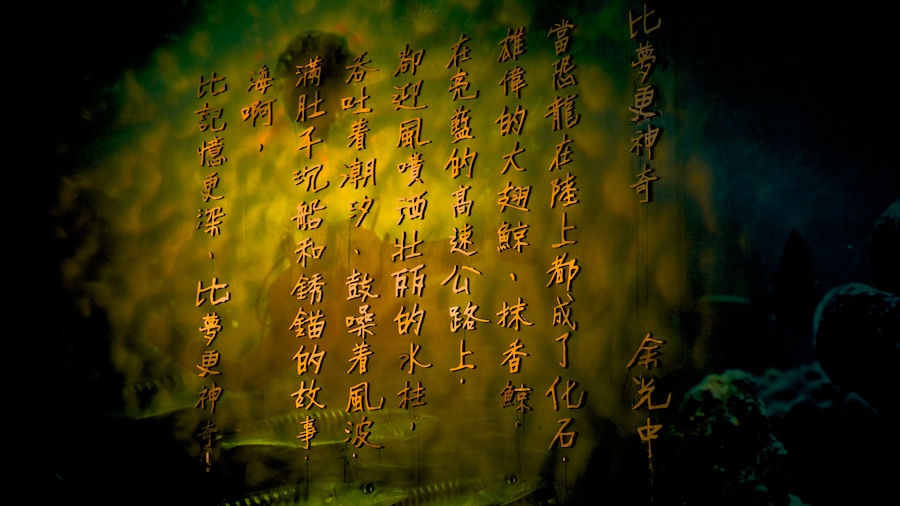 比夢更神奇 余光中
當恐龍在陸上都成了化石.
雄偉的大翅鯨、抹香鯨.
在亮藍的高速公路上.
卻迎風噴洒壯丽的水柱,
吞吐着潮汐、鼓噪着風波.
滿肚子沉船和銹錨的故事.
海啊,
比記憶更深、比夢更神奇!